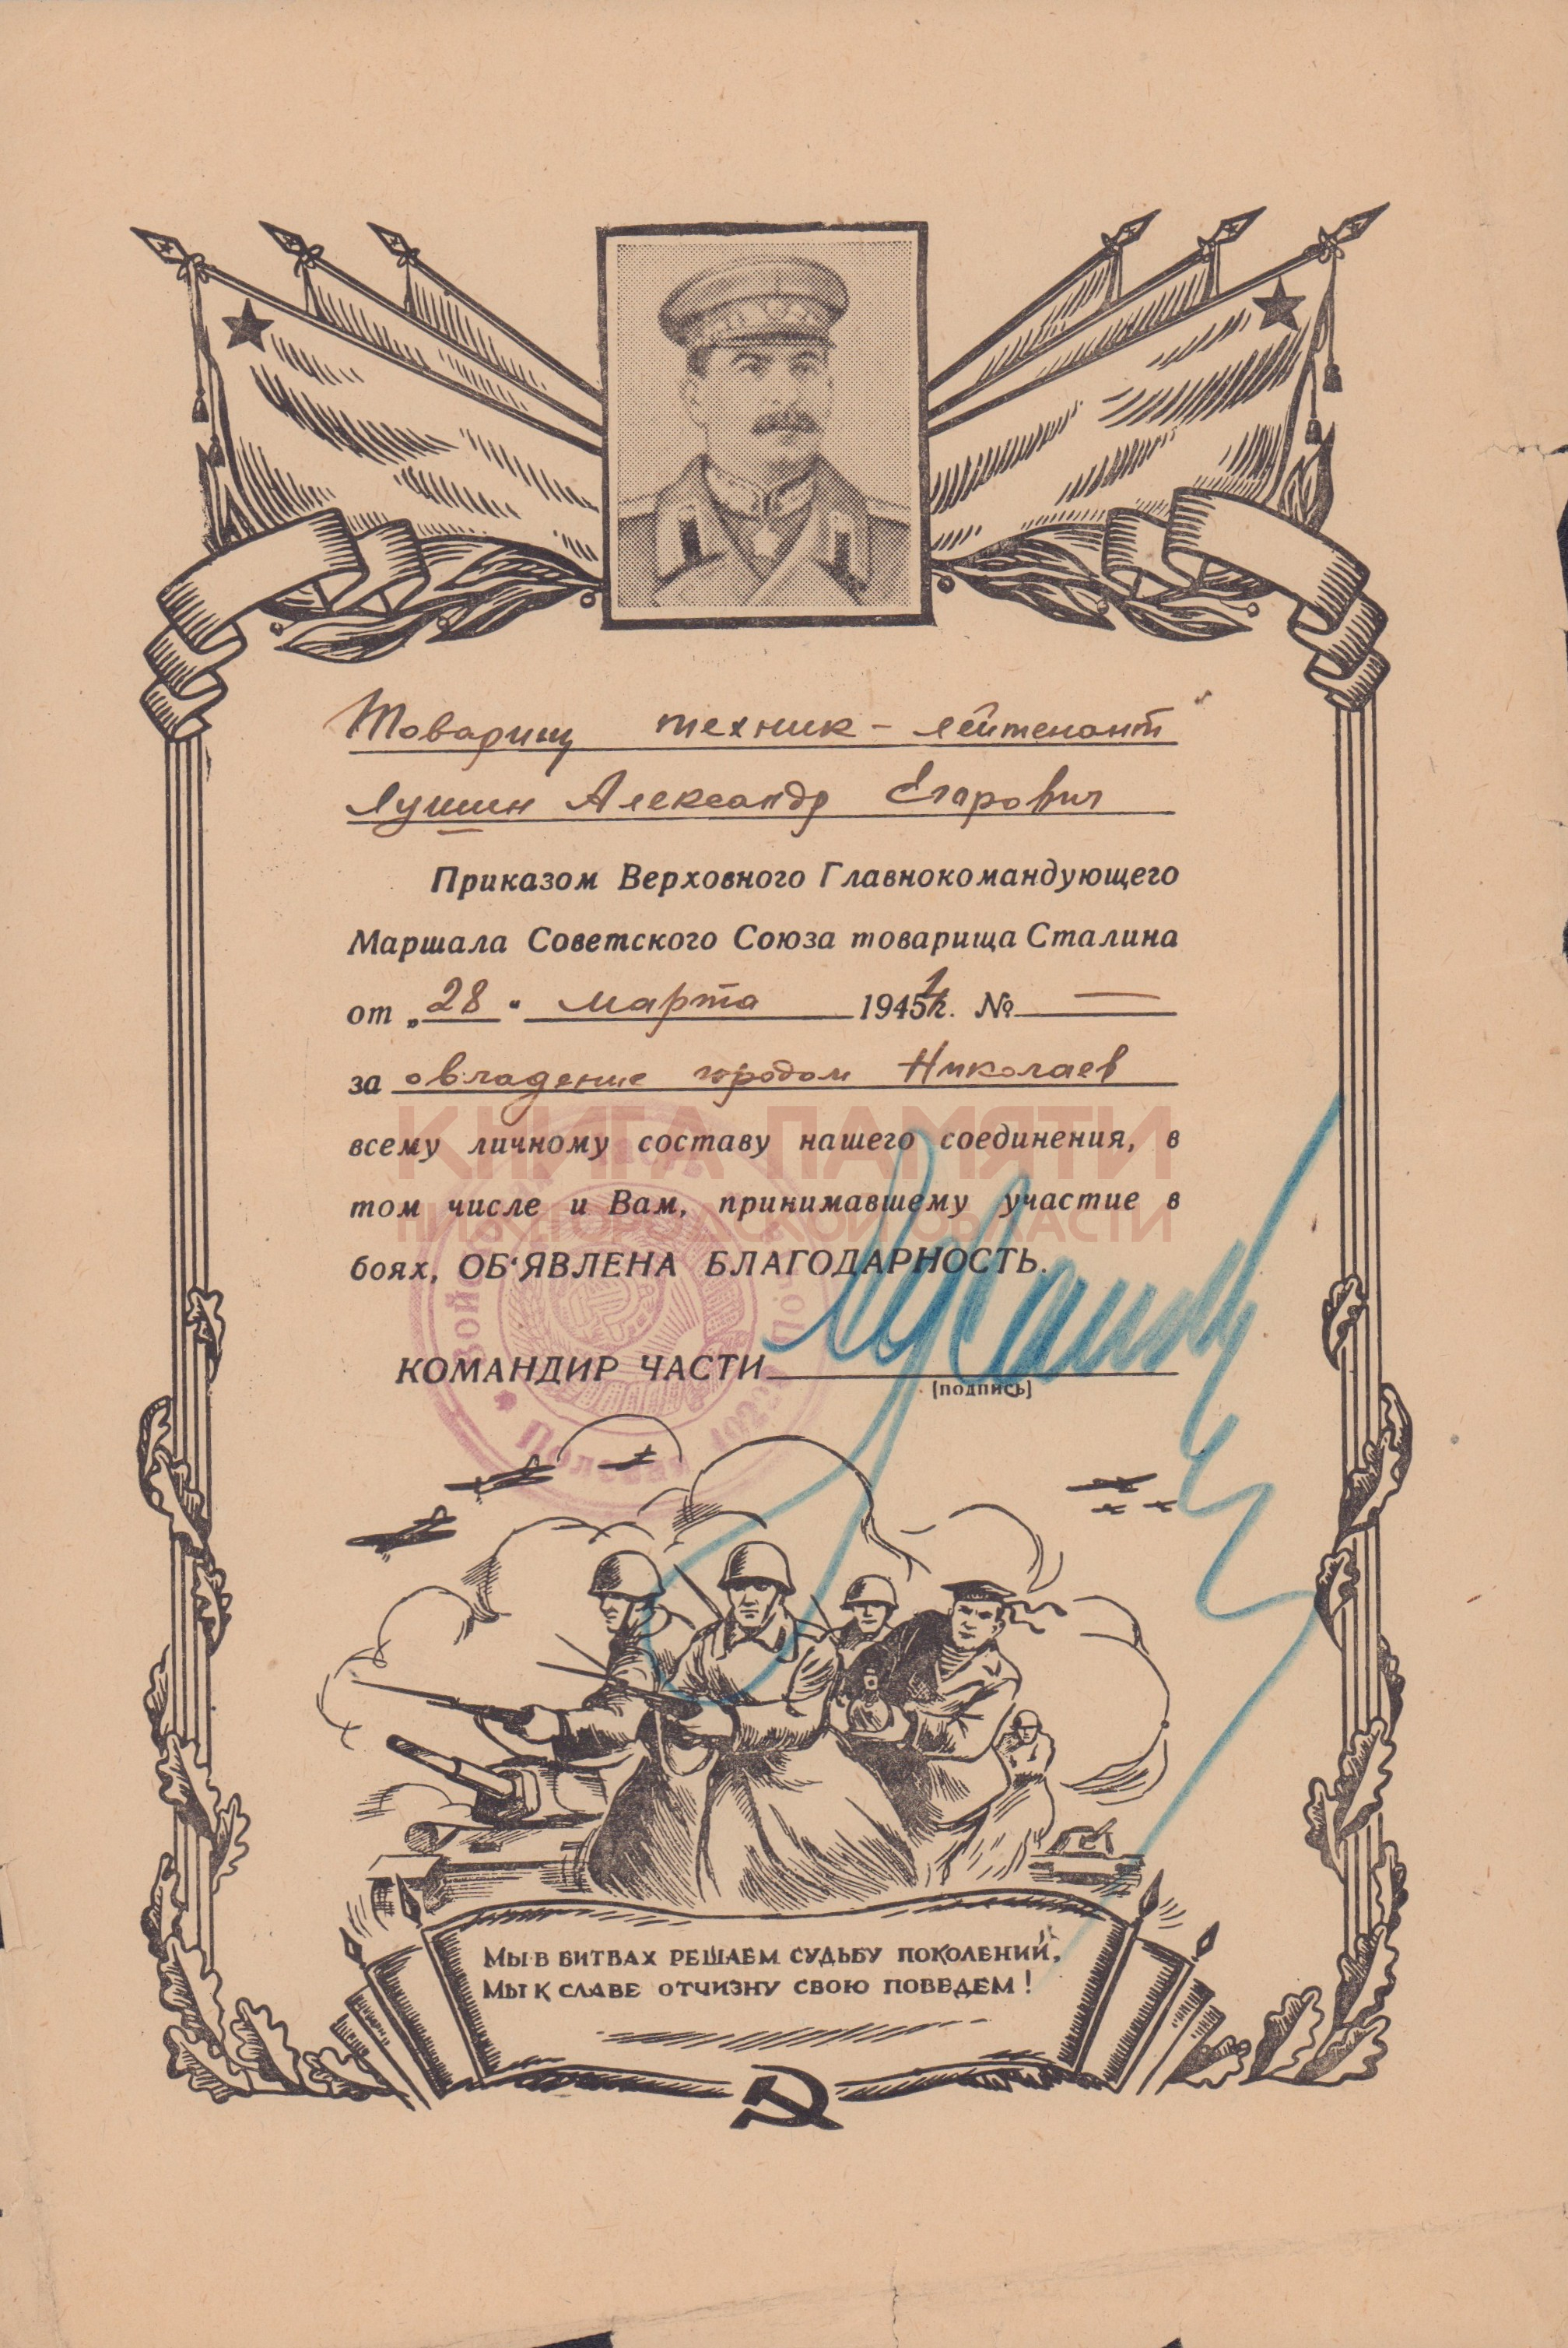 Товарищ техник-лейтенант
Лушин Александр Егарович
Приказом Верховного Главнокомандующего
Маршала Советского Союза товарища Сталина
от „28" марта 1945 4 г. № —
за овладение городом Николаев
КНИГА ПАМЯТИ
всему личному составу нашего соединения, в
том числе и Вам, принимавшему участие в
НИЖЕГОРОДСКОЙ ОБЛАСТИ
боях, ОБ‘ЯВЛЕНА БЛАГОДАРНОСТЬ.
КОМАНДИР ЧАСТИ
(подпись)
Полевая
МЫ В БИТВАХ РЕШАЕМ СУДЬБУ ПОКОЛЕНИЙ,
МЫ К СЛАВЕ ОТЧИЗНУ СВОЮ ПОВЕДЕМ!